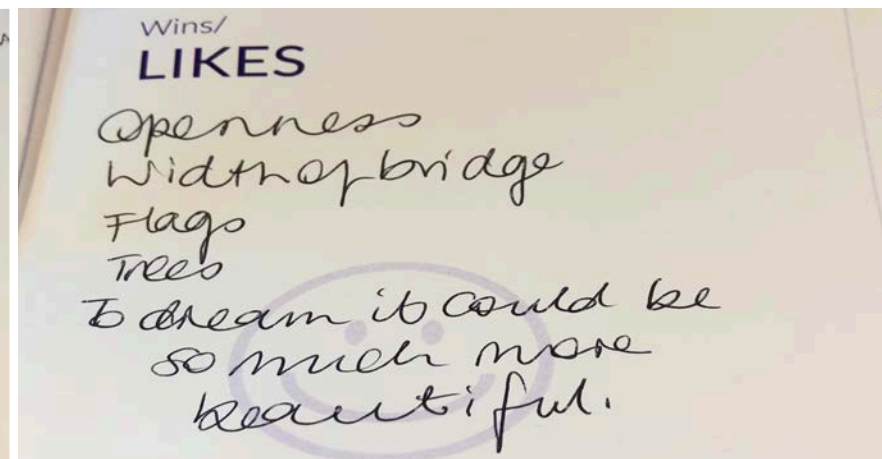 Wins/
LIKES
Openness
Width of bridge
Flags
Trees
To dream it could be
so much more
beautiful.